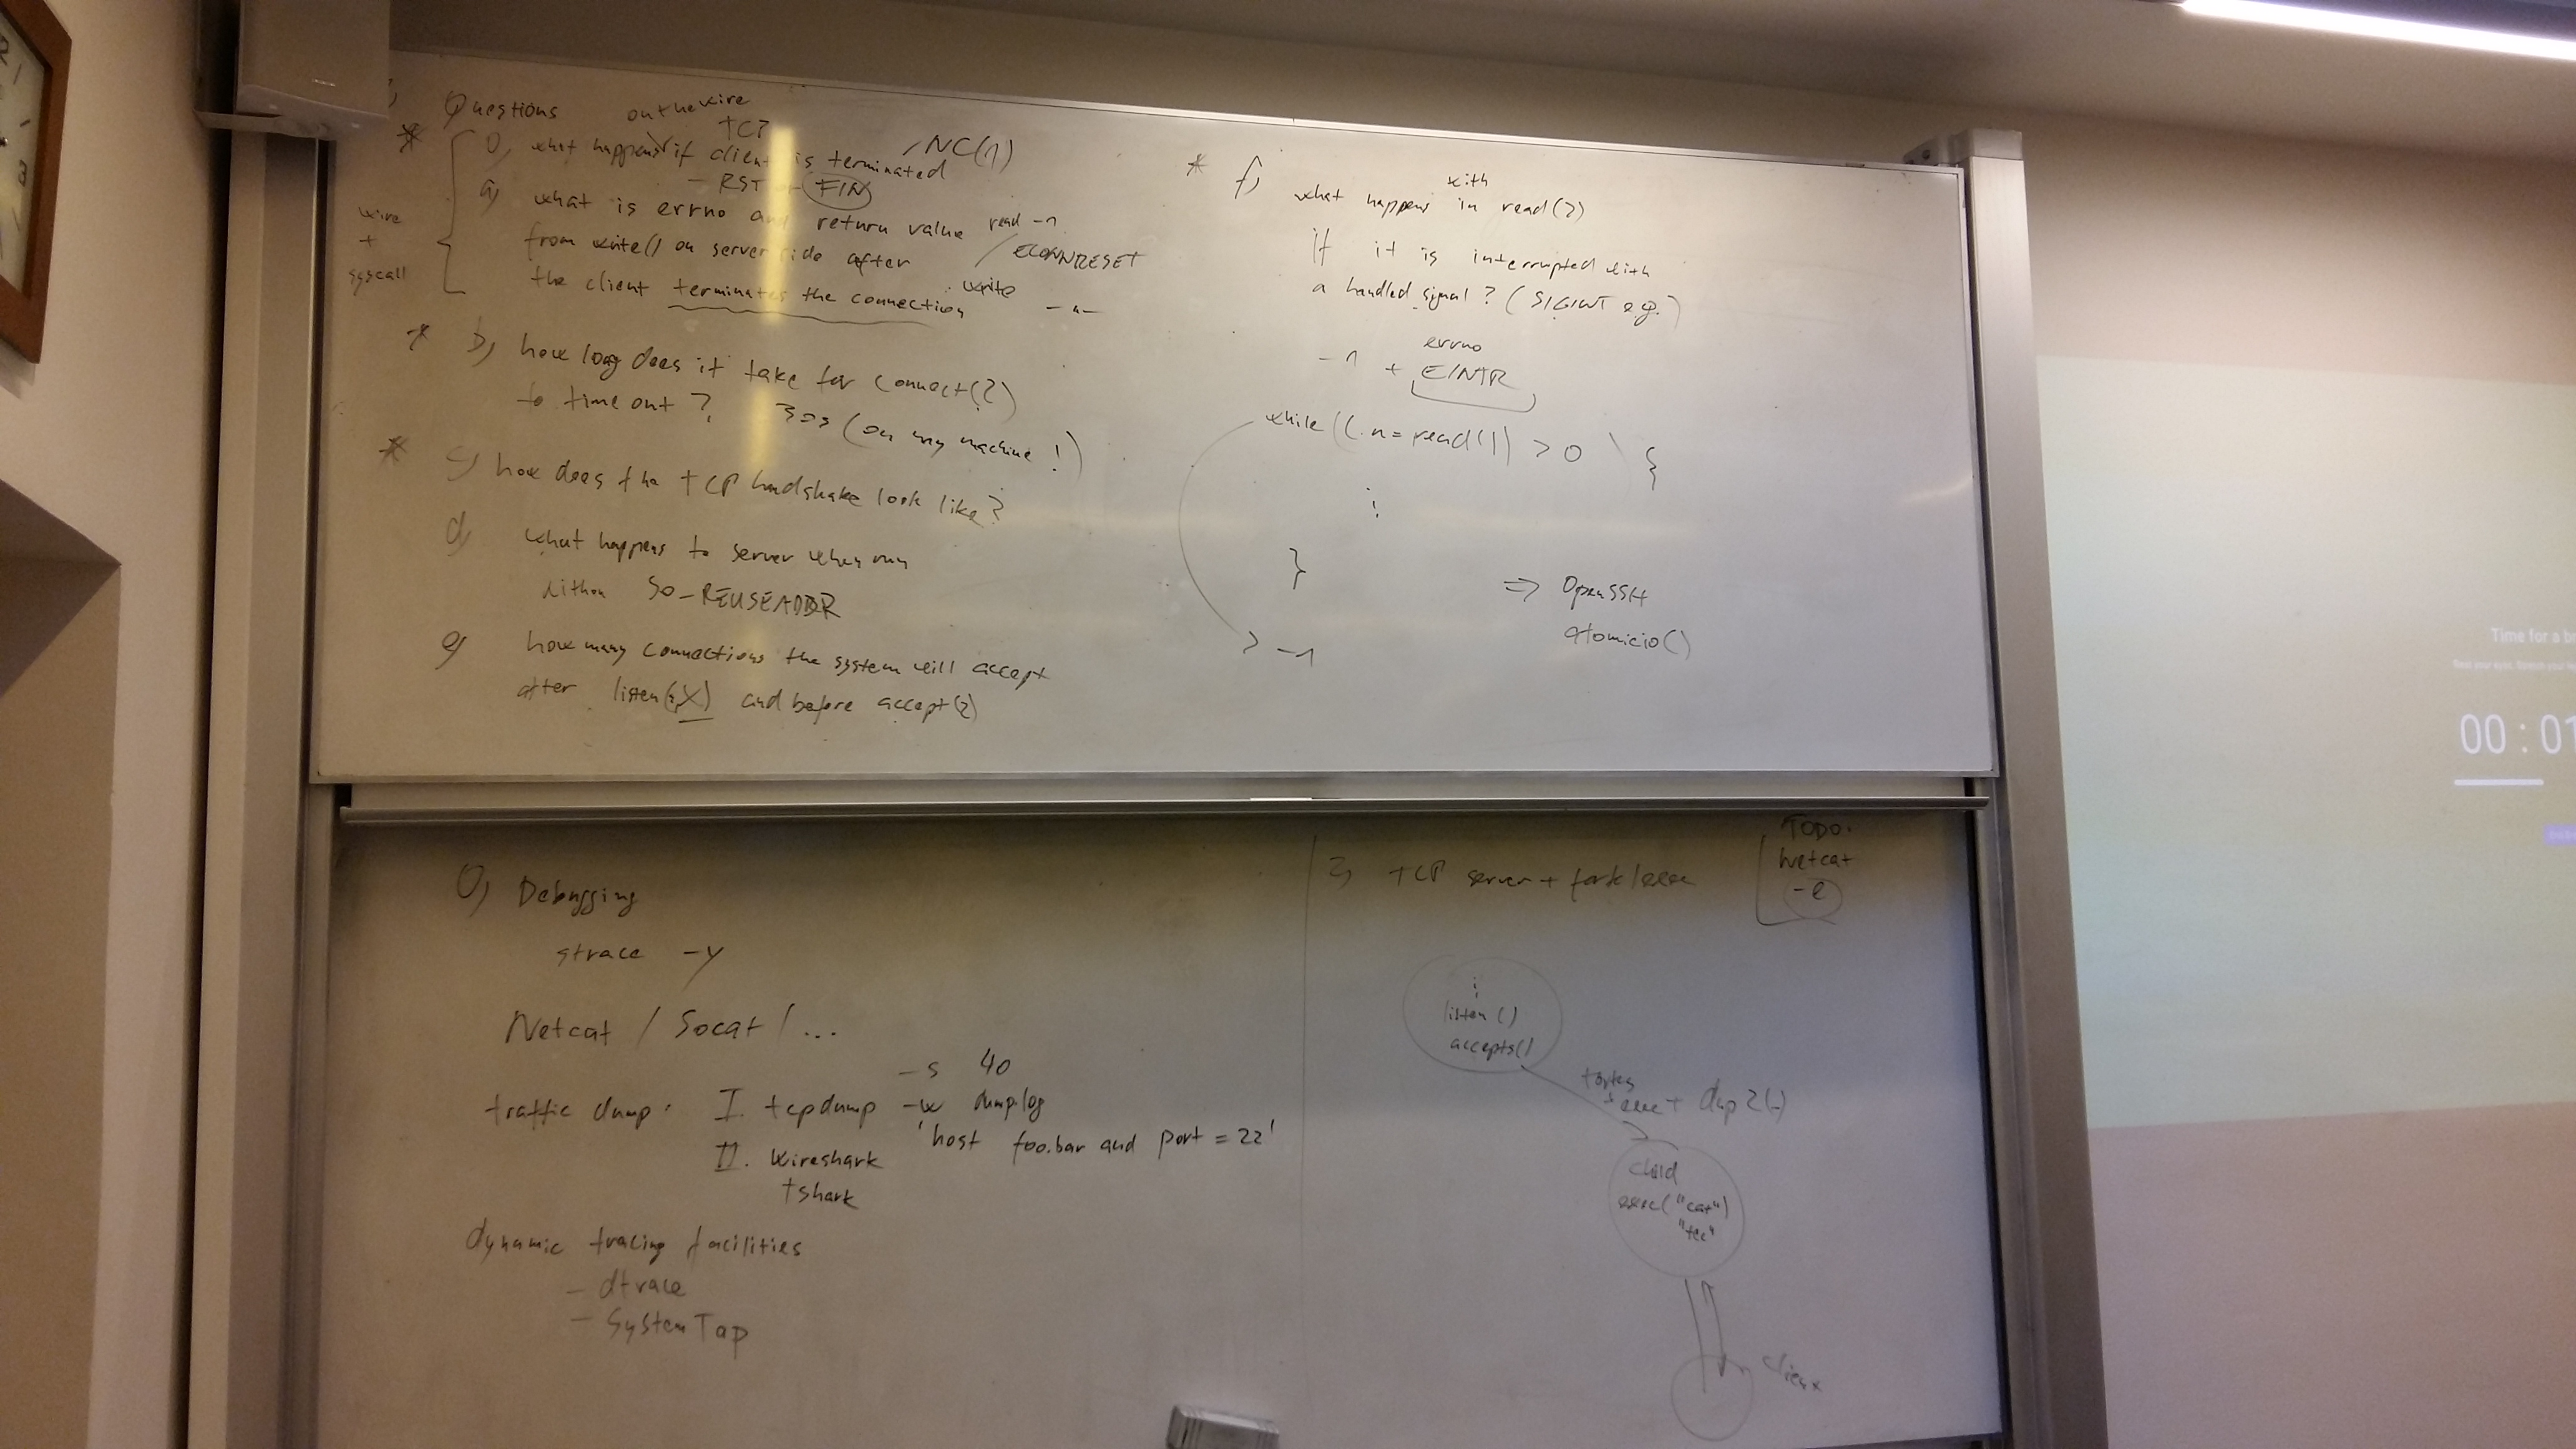 Questions
on the wire
TCP
0) what happens if client is terminated
NC(1)
- RST or FIN
a) what is errno and return value
from write() on server side after
the client terminates the connection
read -1
/ ECONNRESET
write -"-
wire
+
syscall
b) how long does it take for connect(2)
to time out ? 30s (on my machine !)
c) how does the TCP handshake look like?
d) what happens to server when run
SO_REUSEADDR
e) how many connections the system will accept
after listen(, X) and before accept(2)
* f) what happens in read(2)
with
if it is interrupted with
a handled signal ? (SIGINT e.g.)
errno
-1 + EINTR
while ((n=read()) > 0 ) {
:
}
> -1
=> OpenSSH
atomicio()
0) Debugging
strace -y
Netcat / Socat / ...
-s 40
traffic dump: I. tcpdump -w dump.log
'host foo.bar and port = 22'
II. Wireshark
tshark
dynamic tracing facilities
- dtrace
- SystemTap
TCP server + fork/exec
TODO.
netcat
-e
:
listen ()
accepts()
+ dup2(-)
child
exec("cat")
"tee"
client
Time for a br
00 : 01